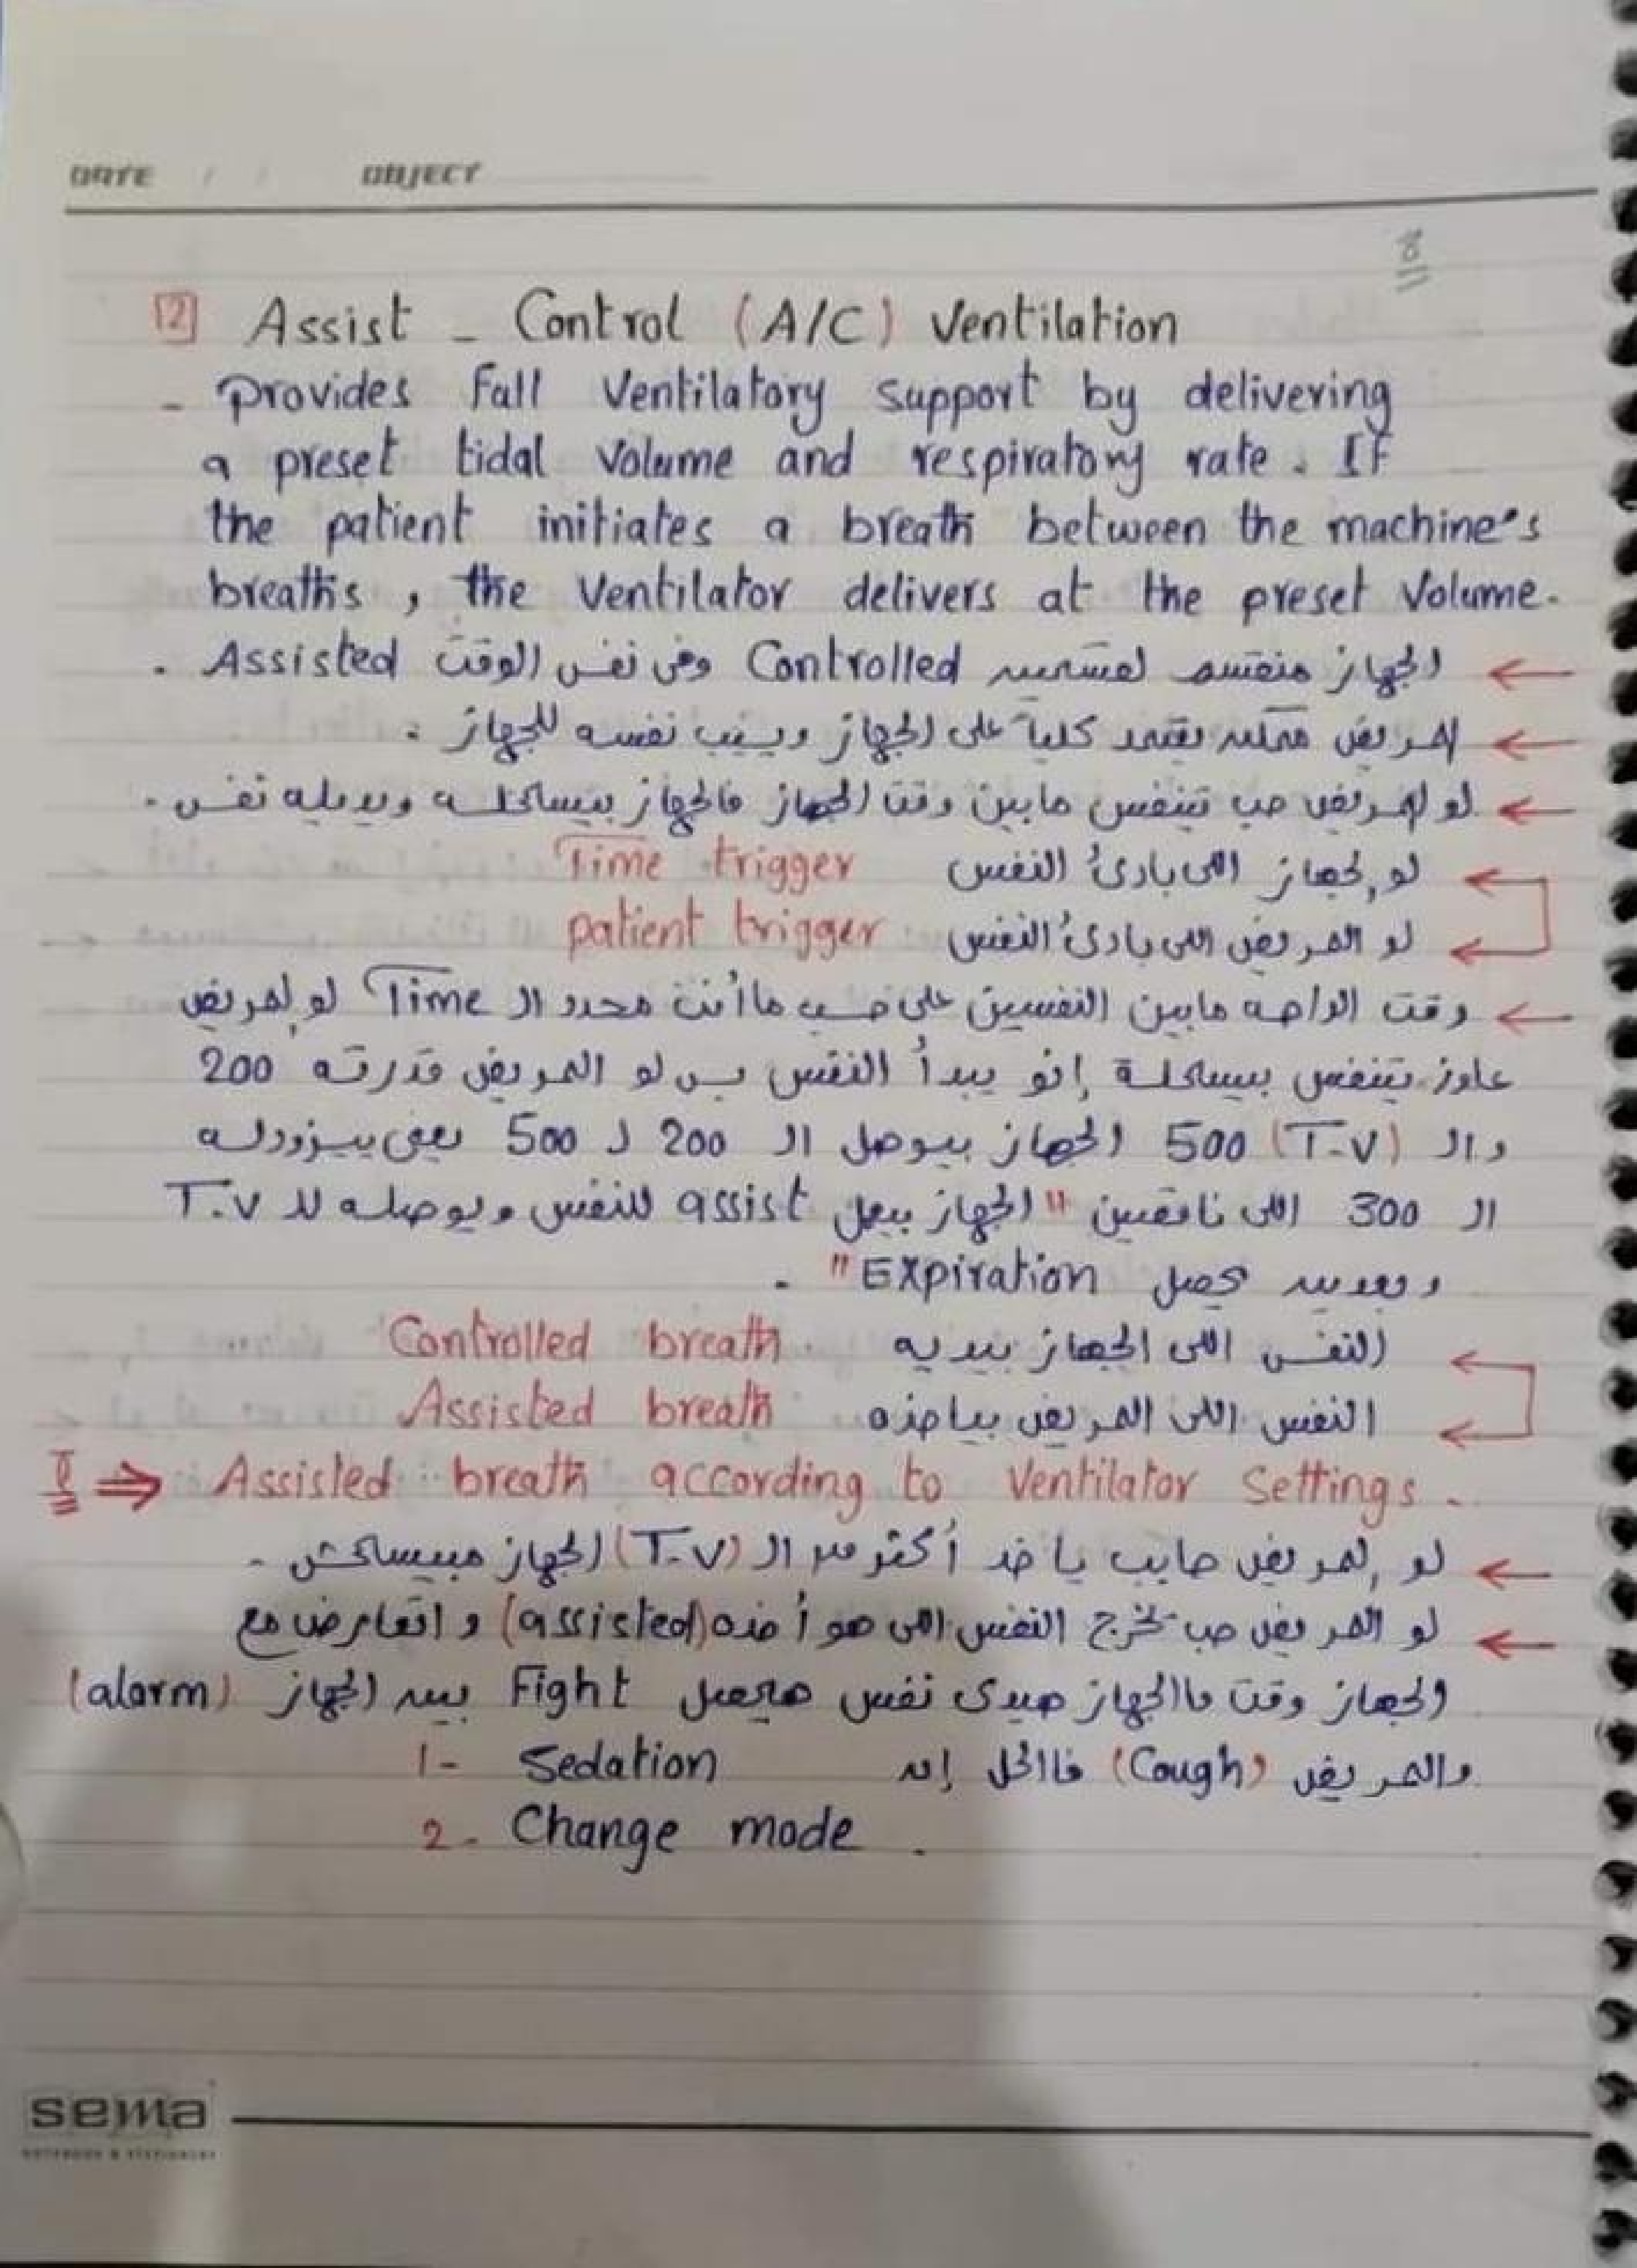 DATE / / OBJECT
8
[2] Assist - Control (A/C) Ventilation
- Provides Full Ventilatory support by delivering
a preset tidal Volume and respiratory rate. If
the patient initiates a breath between the machine's
breaths, the Ventilator delivers at the preset Volume.
← الجهاز منقسم لقسمين Controlled وفى نفس الوقت Assisted .
← المريض ممكن يعتمد كلياً على الجهاز ويسيب نفسه للجهاز .
← لو المريض حب يتنفس مابين وقت الجهاز فالجهاز بيساعده ويديله نفس .
← لو الجهاز اللى بادئ النفس Time trigger
← لو المريض اللى بادئ النفس patient trigger
← وقت الراحه مابين النفسين على حسب ماأنت محدد الـ Time لو المريض
عاوز يتنفس بيساعدة إنو يبدأ النفس بس لو المريض قدرته 200
والـ (T.V) 500 الجهاز بيوصل الـ 200 لـ 500 يعنى بيزودله
الـ 300 اللى ناقصين " الجهاز بيعمل assist للنفس ويوصله للـ T.V
وبعدين يحصل Expiration " .
← النفس اللى الجهاز بيديه Controlled breath
← النفس اللى المريض بياخذه Assisted breath
⇒ Assisted breath according to Ventilator Settings .
← لو المريض حابب ياخد أكثر من الـ (T.V) الجهاز مبيساعدش .
← لو المريض حب يخرج النفس اللى هو أخذه (assisted) و اتعارض مع
الجهاز وقت ماالجهاز هيدى نفس هيحصل Fight بين الجهاز (alarm)
والمريض (Cough) فاالحل إن 1- Sedation
2- Change mode .
sema
NOTEBOOK & STATIONERY